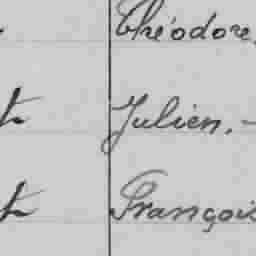 Théodore,
Julien. -
François